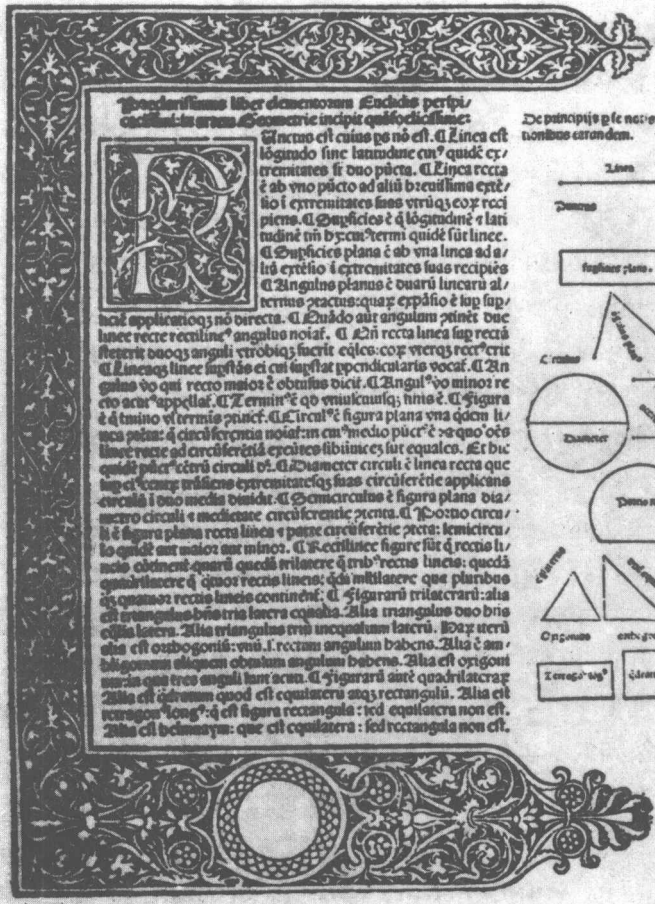 Preclarissimus liber elementorum Euclidis perspi/
cacissimi: in artem Geometrie incipit quàfoelicissime:
Unctus est cuius ps nõ est. ¶ Linea est
lõgitudo sine latitudine cuiꝰ quidẽ ex/
tremitates sũt duo pũcta. ¶ Linea recta
ẽ ab vno pũcto ad aliũ breuissima extẽ/
sio ĩ extremitates suas vtrũqꝫ eoꝝ reci
piens. ¶ Supficies ẽ q̃ lõgitudinẽ ⁊ lati
tudinẽ tm̃ hꝫ: cuiꝰ termi quidẽ sũt linee.
¶ Supficies plana ẽ ab vna linea ad a/
liã extẽsio ĩ extremitates suas recipiẽs
¶ Angulus planus ẽ duarũ linearũ al/
ternus ꝯtactus: quaꝝ expãsio ẽ sup sup/
ficiẽ applicatioqꝫ nõ directa. ¶ Quãdo aũt angulum ꝯtinẽt due
linee recte rectilineꝰ angulus noiaſ. ¶ Qñ recta linea sup rectã
steterit duoqꝫ anguli vtrobiqꝫ fuerit eq̃les: eoꝝ vterqꝫ rectꝰ erit
¶ Lineaqꝫ linee supstãs ei cui supstat ppendicularis vocaſ. ¶ An
gulus vo qui recto maior ẽ obtusus diciſ. ¶ Angulꝰ vo minor re
cto acutꝰ appellaſ. ¶ Terminꝰ ẽ qd vniuscuiusqꝫ finis ẽ. ¶ Figura
ẽ q̃ tmino vl termis ꝯtineſ. ¶ Circulꝰ ẽ figura plana vna q̃dem li/
nea ꝯtẽta: q̃ circũferentia noiaſ: in cuiꝰ medio pũctꝰ ẽ: a quo oẽs
linee recte ad circũferẽtiã exeũtes sibiinuicẽ sũt equales. Et hic
quidẽ pũctꝰ cẽtrũ circuli dꝛ. ¶ Diameter circuli ẽ linea recta que
sup eiꝰ centꝝ trãsiens extremitatesqꝫ suas circũferẽtie applicans
circulũ ĩ duo media diuidit. ¶ Semicirculus ẽ figura plana dia/
metro circuli ⁊ medietate circũferentie ꝯtenta. ¶ Portio circu/
li ẽ figura plana recta linea ⁊ parte circũferẽtie ꝯtẽta: semicircu/
lo quidẽ aut maior aut minor. ¶ Rectilinee figure sũt q̃ rectis li/
neis cõtinent quarũ quedã trilatere q̃ tribꝰ rectis lineis: quedã
quadrilatere q̃ q̃tuor rectis lineis: q̃dã mltilatere que pluribus
qꝫ quatuor rectis lineis continenſ. ¶ Figurarũ trilaterarũ: alia
est triangulus hñs tria latera equalia. Alia triangulus duo hñs
eq̃lia latera. Alia triangulus triũ inequalium laterũ. Haꝝ iterũ
alia est orthogoniũ: vnũ .i. rectum angulum habens. Alia ẽ am/
bligonium aliquem obtusum angulum habens. Alia est oxigoni
um: in qua tres anguli sunt acuti. ¶ Figurarũ autẽ quadrilateraꝝ
Alia est q̃dratum quod est equilaterũ atqꝫ rectangulũ. Alia est
tetragonꝰ longꝰ: q̃ est figura rectangula: sed equilatera non est.
Alia est helmuaym: que est equilatera: sed rectangula non est.
De principijs p se notis
tionibus earundem.
Linea
Punctus
Supficies plana.
Circulus
Diameter
Oxigonius
Tetragonꝰ lõgꝰ